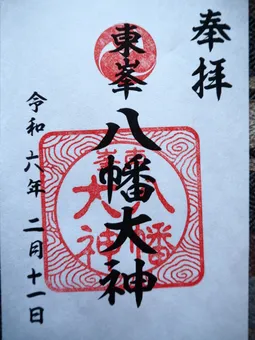 奉拝
東峯八幡大神
令和六年二月十一日
東峯
八幡
大神